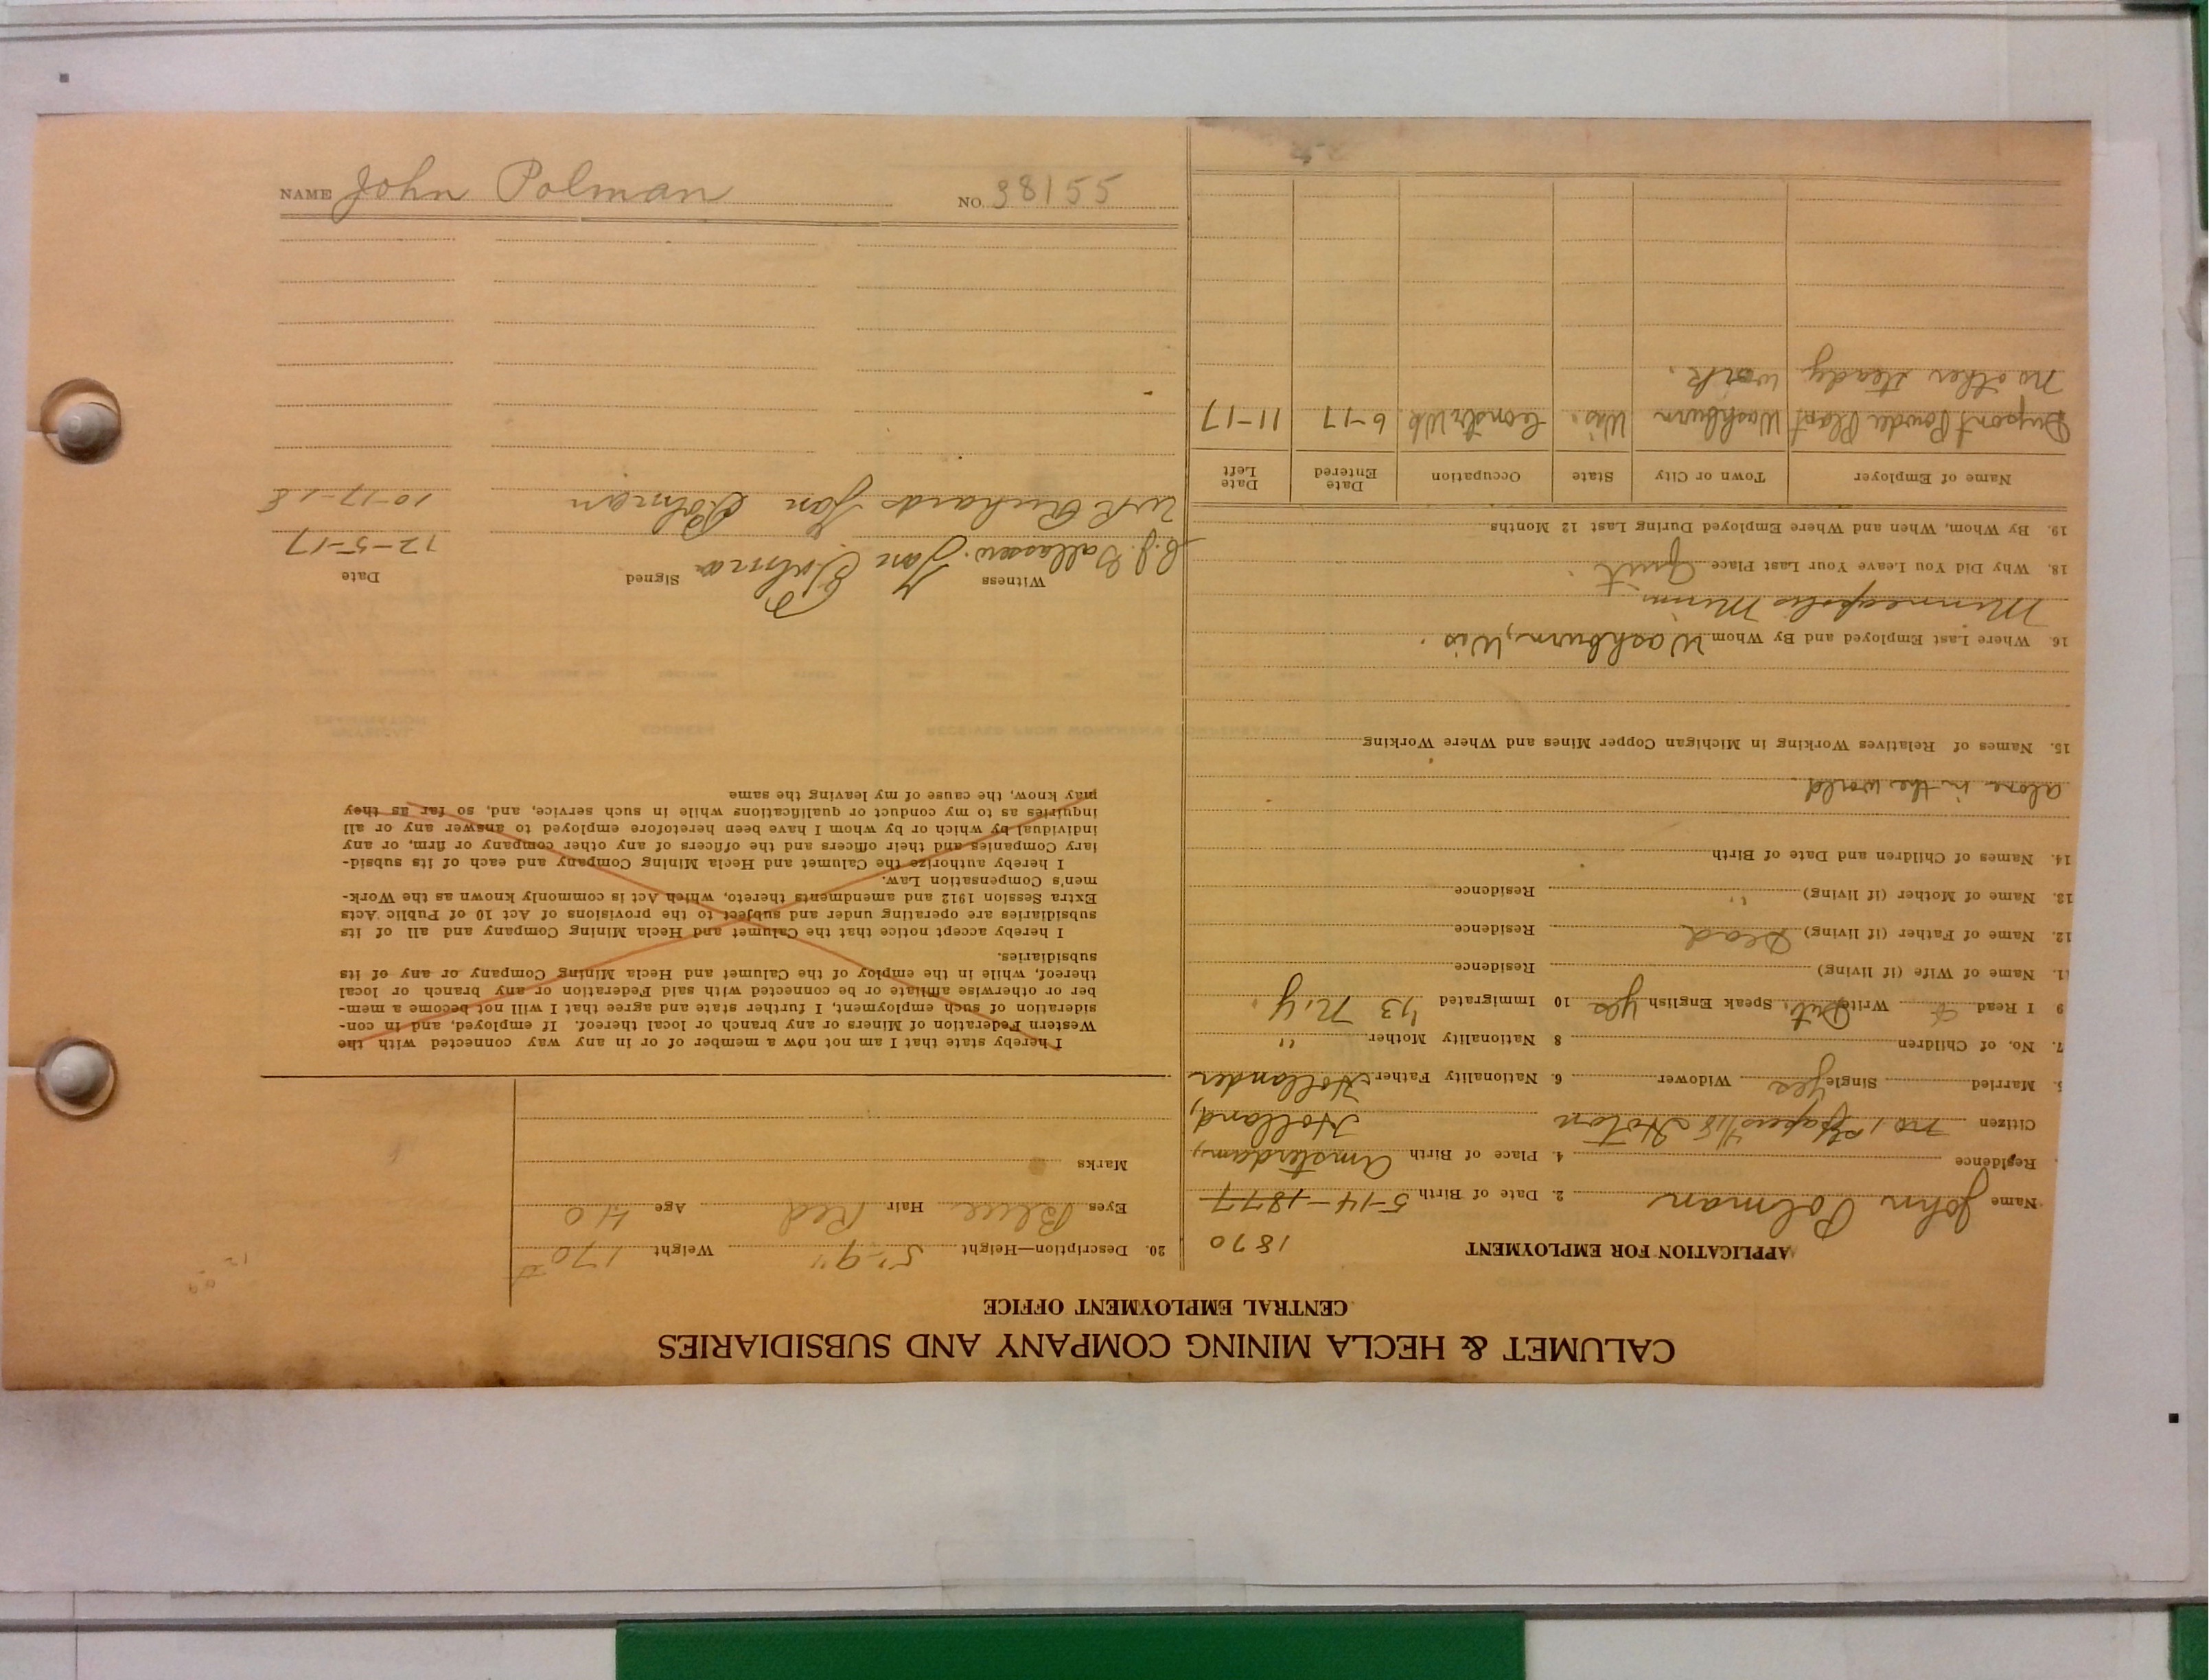 CALUMET & HECLA MINING COMPANY AND SUBSIDIARIES
CENTRAL EMPLOYMENT OFFICE
APPLICATION FOR EMPLOYMENT
1870
Name John Polman 2. Date of Birth 5-14-1877
Residence 4. Place of Birth Amsterdam,
Citizen no, 1st papers 7/18 Hoton Holland,
Married Single yes Widower 6. Nationality Father Hollander
7. No. of Children 8 Nationality Mother "
9 I Read & Write Dut. Speak English yes 10 Immigrated '13 N.Y.
11. Name of Wife (if living) Residence
12. Name of Father (if living) Dead Residence
13. Name of Mother (if living) " Residence
14. Names of Children and Date of Birth
alone in the world.
15. Names of Relatives Working in Michigan Copper Mines and Where Working
16. Where Last Employed and By Whom Washburn, Wis.
Minneapolis Minn.
18. Why Did You Leave Your Last Place Quit.
19. By Whom, When and Where Employed During Last 12 Months
Name of Employer Town or City State Occupation Date Entered Date Left
Dupont Powder Plant Washburn Wis. Constr Wk 6-17 11-17
no other steady work.
20. Description—Height 5'-9" Weight 170#
Eyes Blue Hair Red Age 40
Marks
I hereby state that I am not now a member of or in any way connected with the
Western Federation of Miners or any branch or local thereof. If employed, and in con-
sideration of such employment, I further state and agree that I will not become a mem-
ber or otherwise affiliate or be connected with said Federation or any branch or local
thereof, while in the employ of the Calumet and Hecla Mining Company or any of its
subsidiaries.
I hereby accept notice that the Calumet and Hecla Mining Company and all of its
subsidiaries are operating under and subject to the provisions of Act 10 of Public Acts
Extra Session 1912 and amendments thereto, which Act is commonly known as the Work-
men's Compensation Law.
I hereby authorize the Calumet and Hecla Mining Company and each of its subsid-
iary Companies and their officers and the officers of any other company or firm, or any
individual by which or by whom I have been heretofore employed to answer any or all
inquiries as to my conduct or qualifications while in such service, and, so far as they
may know, the cause of my leaving the same
Witness Signed Date
Jan Polman 12-5-17
W R Richards Jan Polman 10-17-18
NAME John Polman NO. 38155